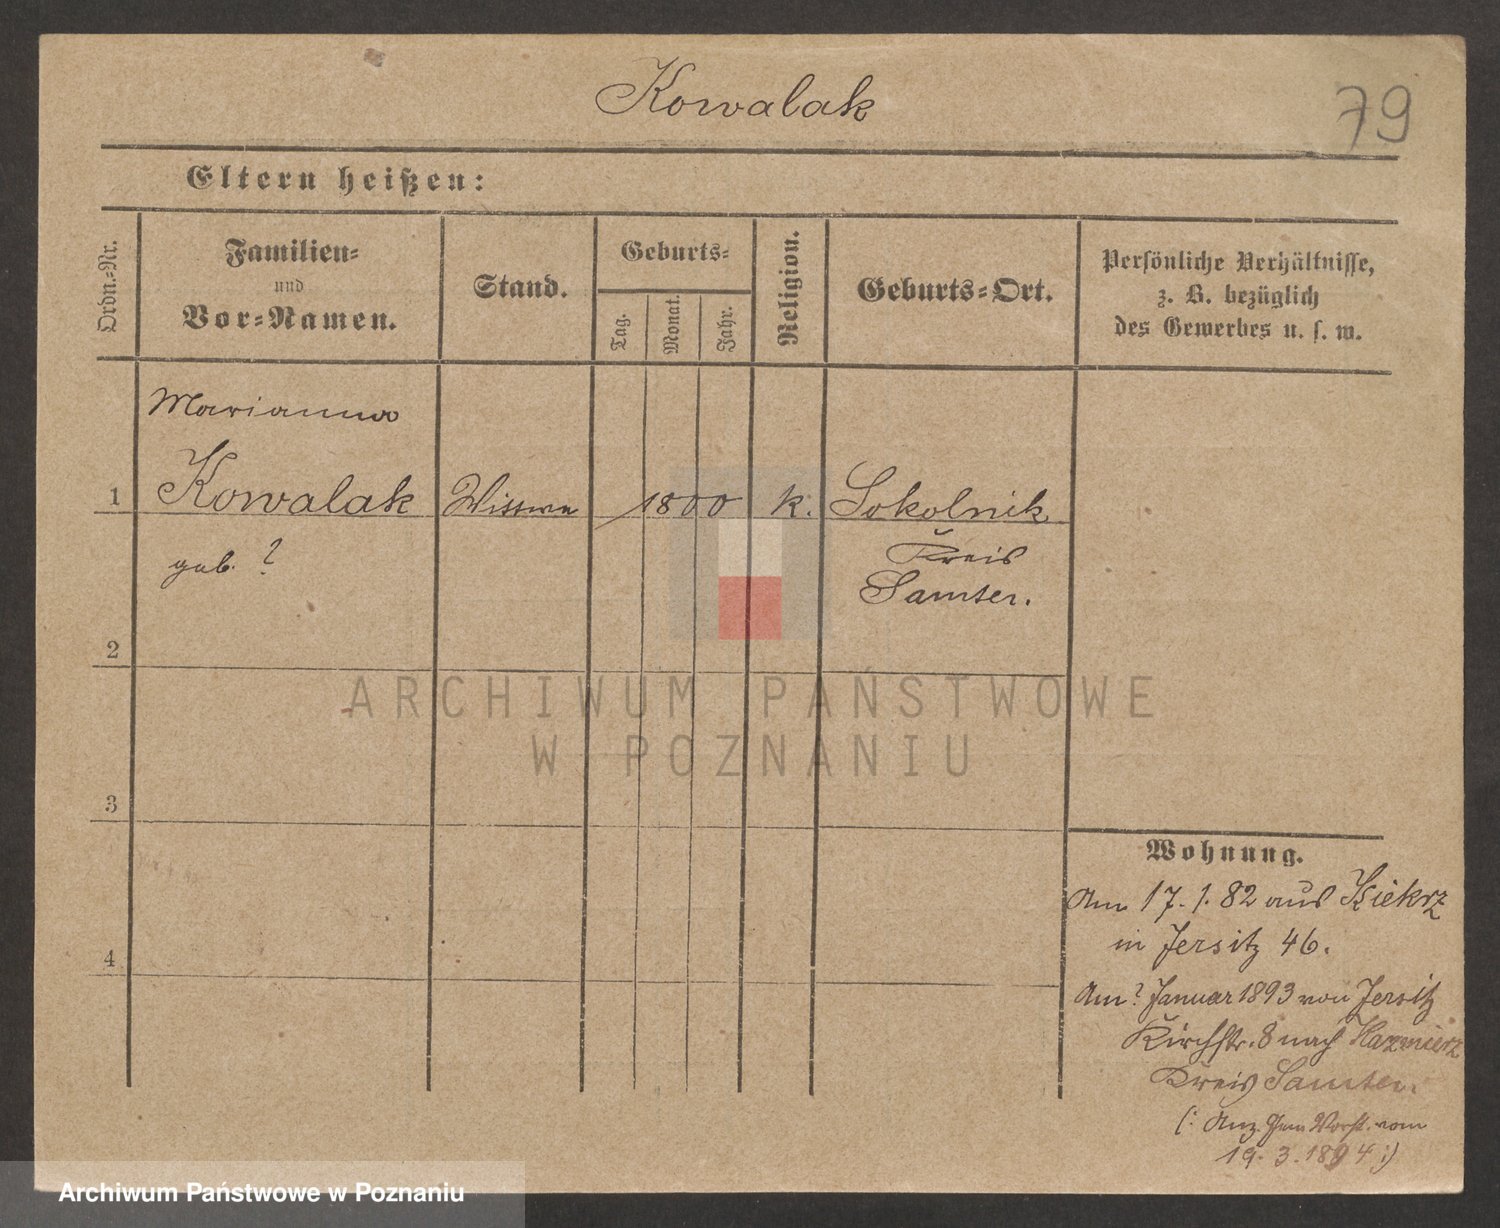 Kowalak
79
Eltern heißen:
Ordn.-Nr.
Familien-
und
Vor-Namen.
Stand.
Geburts-
Tag.
Monat.
Jahr.
Religion.
Geburts-Ort.
Persönliche Verhältnisse,
z. B. bezüglich
des Gewerbes u. s. w.
Marianna
1 Kowalak Wittwe 1800 k. Sokolnik
geb. ?
Kreis
Samter.
2
3
4
Wohnung.
Am 17. 1. 82 aus Kiekrz
in Jersitz 46.
Am ? Januar 1893 von Jersitz
Kirchstr. 8 nach Kazmierz
Kreis Samter.
(: Anz. Gem. Vorst. vom
19. 3. 1894 :)
ARCHIWUM PAŃSTWOWE
W POZNANIU
Archiwum Państwowe w Poznaniu